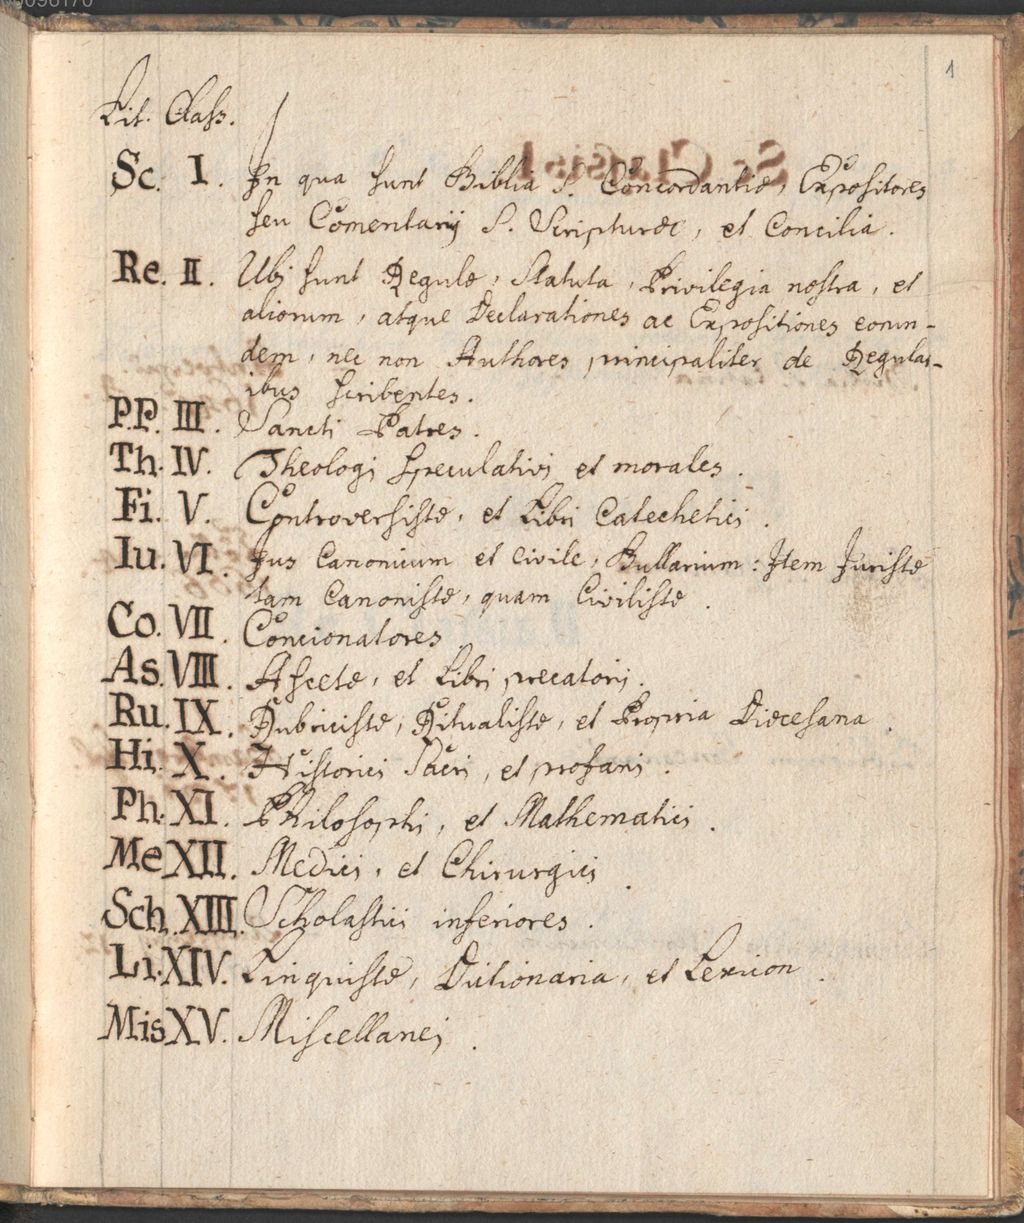 1
Lit. Class.
Sc. I. In qua sunt Biblia S. Concordantiæ, Expositores
seu Comentarij S. Scripturæ, et Concilia.
Re. II. Ubi sunt Regulæ, Statuta, Privilegia nostra, et
aliorum, atque Declarationes ac Expositiones eorun-
dem, nec non Authores principaliter de Regular-
ibus scribentes.
P.P. III. Sancti Patres.
Th. IV. Theologi speculativi et morales.
Fi. V. Controversistæ, et Libri Catechetici.
Iu. VI. Jus Canonicum et civile, Bullarium: Item Juristæ
tam Canonistæ, quam Civilistæ.
Co. VII. Concionatores
As. VIII. Ascetæ, et Libri precatorij.
Ru. IX. Rubricistæ, Ritualistæ, et Propria Diœcesana.
Hi. X. Historici Sacri, et profani.
Ph. XI. Philosophi, et Mathematici.
Me XII. Medici, et Chirurgici.
Sch. XIII. Scholastici inferiores.
Li. XIV. Linquistæ, Dictionaria, et Lexicon.
Mis XV. Miscellanei.